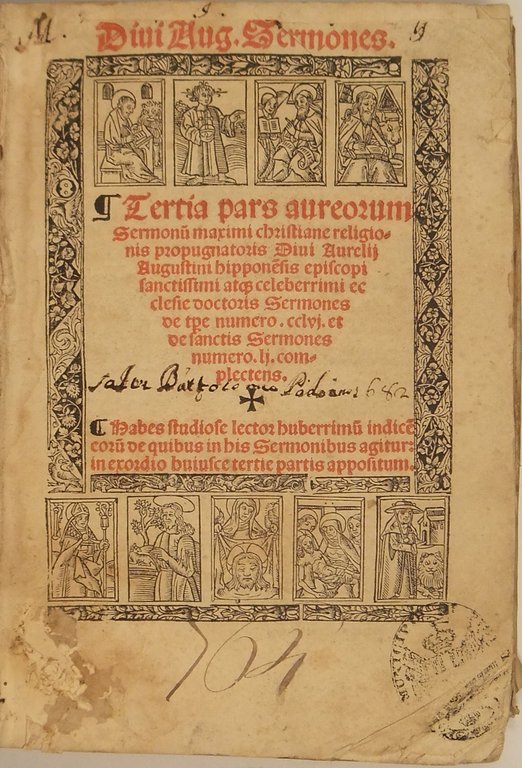 Diui Aug. Sermones.
¶ Tertia pars aureorum
Sermonū maximi christiane religio-
nis propugnatoris Diui Aurelij
Augustini hipponēsis episcopi
sanctissimi atqꝫ celeberrimi ec
clesie doctoris Sermones
de tpe numero .cclvj. et
de sanctis Sermones
numero .lj. com-
plectens.
¶ Habes studiose lector huberrimū indicē
eorū de quibus in his Sermonibus agitur:
in exordio huiusce tertie partis appositum.